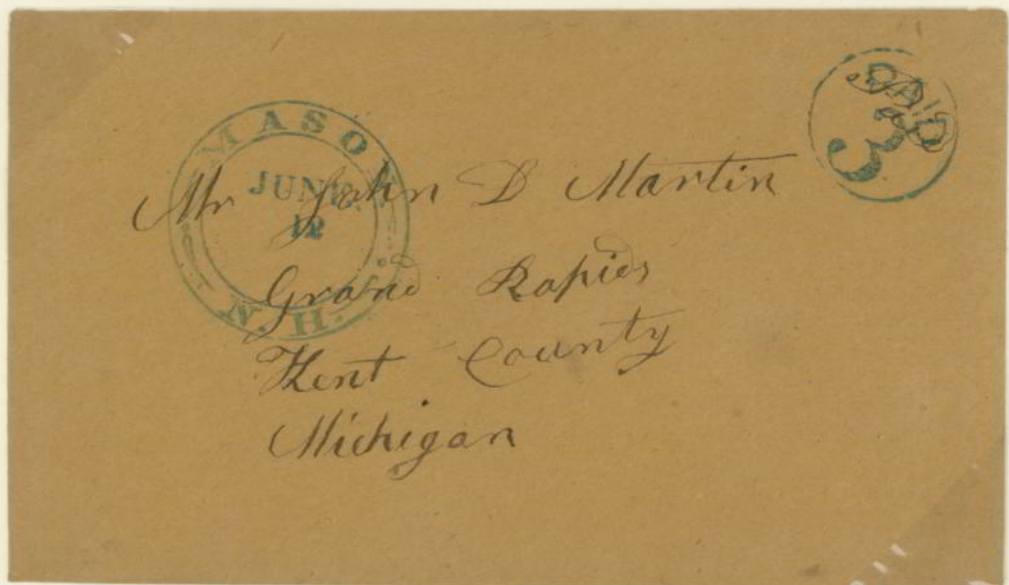 MASON
JUNE
12
N.H.
PAID
3
Paid
Mr John D Martin
Grand Rapids
Kent County
Michigan